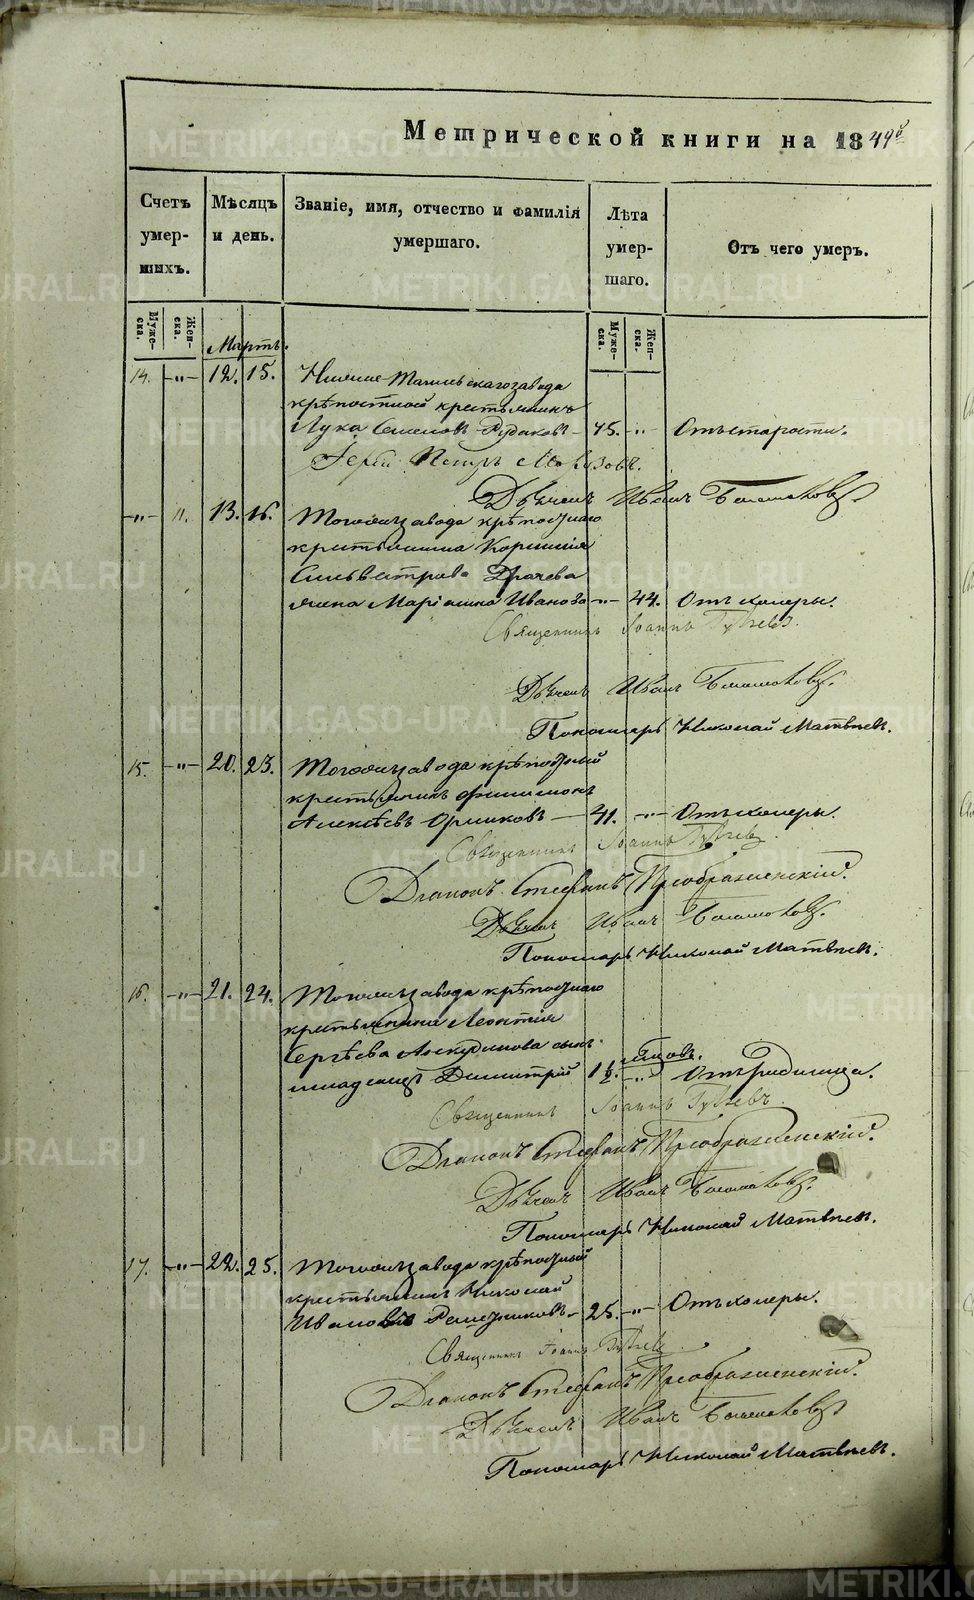 Метрической книги на 1849й
Счетъ умер- шихъ.
Мѣсяцъ и день.
Званіе, имя, отчество и фамилія умершаго.
Лѣта умер- шаго.
Отъ чего умеръ.
Муже- ска.
Жен- ска.
Муже- ска.
Жен- ска.
Мартъ.
14. —"— 12. 15. Нижне-Тагильскаго завода
крѣпостной крестьянинъ
Лука Семеновъ Рудаковъ — 75. —"— Отъ старости.
Іерей Петръ
Дьячекъ Иванъ
—"— 11. 13. 16. Тогожъ завода крѣпостнаго
крестьянина Корнилія
Сильвестрова Драчева
жена Маріамна Иванова —"— 44. Отъ холеры.
Священникъ Іоаннъ
Дьячекъ Иванъ
Пономарь Николай Матвѣевъ.
15. —"— 20. 23. Тогожъ завода крѣпостный
крестьянинъ Филимонъ
Алексѣевъ — 41. —"— Отъ холеры.
Священникъ Іоаннъ
Діаконъ Стефанъ Преображенскій.
Дьячекъ Иванъ
Пономарь Николай Матвѣевъ.
16. —"— 21. 24. Тогожъ завода крѣпостнаго
крестьянина Леонтія
Сергѣева Анкудинова сынъ
младенецъ Димитрій 1½ —"— Отъ родимца.
Священникъ Іоаннъ
Діаконъ Стефанъ Преображенскій.
Дьячекъ Иванъ
Пономарь Николай Матвѣевъ.
17. —"— 22. 25. Тогожъ завода крѣпостный
крестьянинъ Николай
Ивановъ Решетниковъ — 25. —"— Отъ холеры.
Священникъ Іоаннъ
Діаконъ Стефанъ Преображенскій.
Дьячекъ Иванъ
Пономарь Николай Матвѣевъ.
METRIKI.GASO-URAL.RU